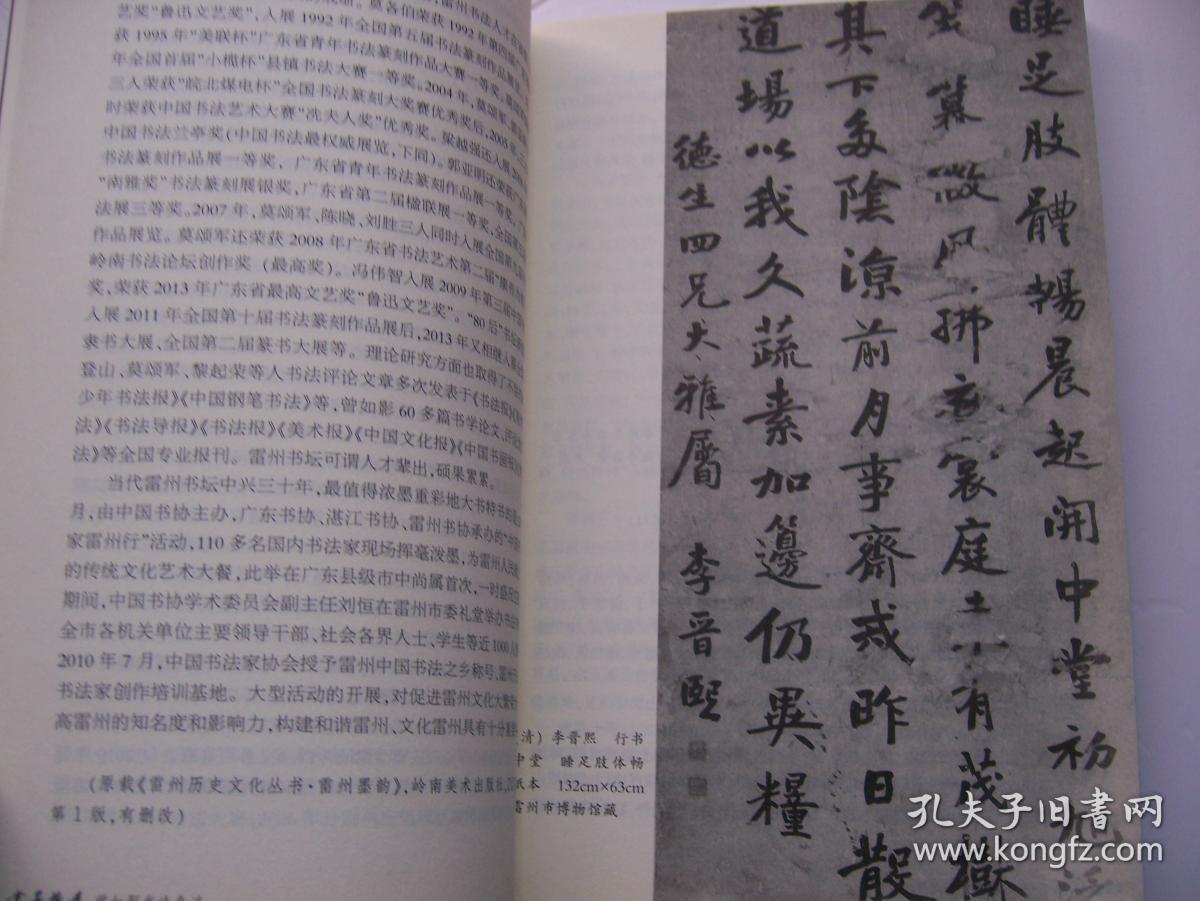 艺奖”鲁迅文艺奖”,入展1992年全国第五届书法篆刻作品展
获1995年“美联杯”广东省青年书法篆刻作品大赛一等奖
年全国首届“小榄杯”县镇书法大赛一等奖。2004年,莫颂军
三人荣获“皖北煤电杯”全国书法篆刻大奖赛优秀奖后,2005年
时荣获中国书法艺术大赛“冼夫人奖”优秀奖。梁越强还入展
中国书法兰亭奖(中国书法最权威展览,下同)。郭亚明还荣获
书法篆刻作品展一等奖,广东省青年书法篆刻作品展一等奖,
“南雅奖”书法篆刻展银奖,广东省第二届楹联展一等奖,全国
法展三等奖。2007年,莫颂军、陈晓、刘胜三人同时入展全国第
作品展览。莫颂军还荣获2008年广东省书法艺术第二届“康
岭南书法论坛创作奖(最高奖)。冯伟智入展2009年第三届中国
奖,荣获2013年广东省最高文艺奖“鲁迅文艺奖”。“80后”书
入展2011年全国第十届书法篆刻作品展后,2013年又相继入展
隶书大展、全国第二届篆书大展等。理论研究方面也取得了不
登山、莫颂军、黎起荣等人书法评论文章多次发表于《书法报》
少年书法报》《中国钢笔书法》等,曾如影60多篇书学论文、评论
法》《书法导报》《书法报》《美术报》《中国文化报》《中国书画报
法》等全国专业报刊。雷州书坛可谓人才辈出,硕果累累。
当代雷州书坛中兴三十年,最值得浓墨重彩地大书特书的是
月,由中国书协主办,广东书协、湛江书协、雷州书协承办的“中国
家雷州行”活动,110多名国内书法家现场挥毫泼墨,为雷州人民
的传统文化艺术大餐,此举在广东县级市中尚属首次,一时盛
期间,中国书协学术委员会副主任刘恒在雷州市委礼堂举办书
全市各机关单位主要领导干部、社会各界人士、学生等近1000
2010年7月,中国书法家协会授予雷州中国书法之乡称号,雷州
书法家创作培训基地。大型活动的开展,对促进雷州文化大繁
高雷州的知名度和影响力,构建和谐雷州、文化雷州具有十分
(原载《雷州历史文化丛书·雷州墨韵》,岭南美术出版社
第1版,有删改)
清)李晋熙 行书
中堂 睡足肢体畅
纸本 132cm×63cm
雷州市博物馆藏
睡足肢體暢晨起開中堂初
簟微风拂衣裳庭上有茂樹
其下多陰涼前月事齋戒昨日散
道場以我久蔬素加籩仍異糧
德生四兄大雅屬 李晋熙
孔夫子旧书网
www.kongfz.com